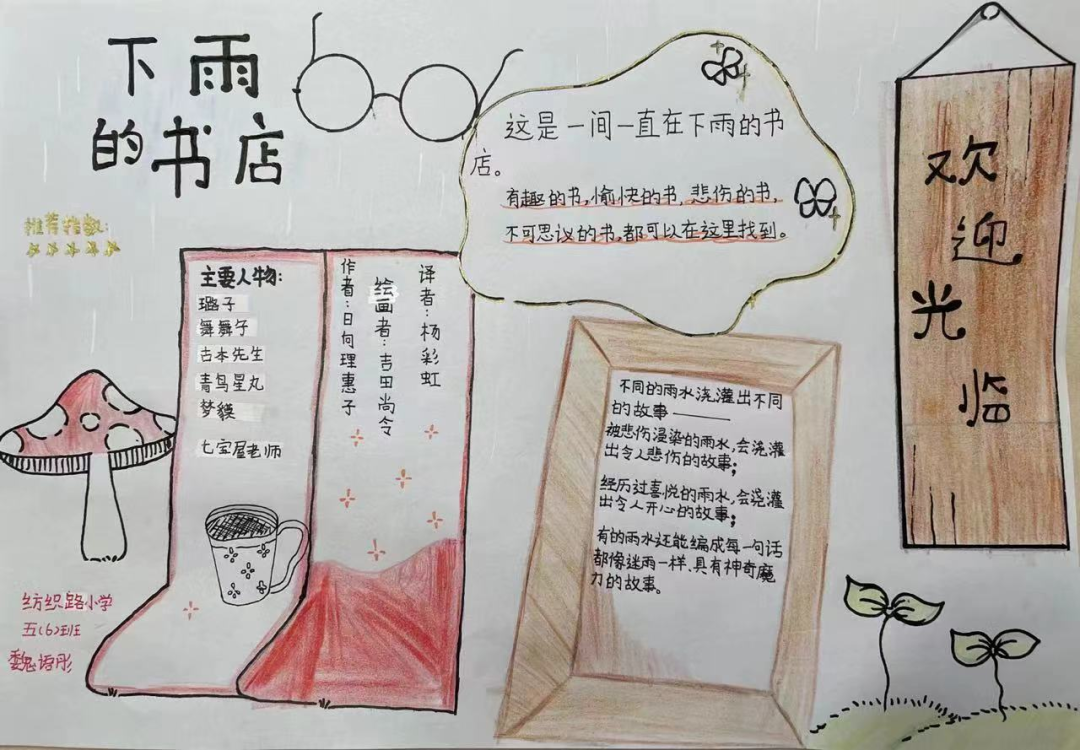 下雨
的书店
推荐指数:
这是一间一直在下雨的书
店。
有趣的书,愉快的书,悲伤的书,
不可思议的书,都可以在这里找到。
欢迎光临
主要人物:
璐子
舞舞子
古本先生
青鸟星丸
梦貘
七宝屋老师
作者:日向理惠子
绘画者:吉田尚令
译者:杨彩虹
不同的雨水浇灌出不同
的故事——
被悲伤浸染的雨水,会浇灌
出令人悲伤的故事;
经历过喜悦的雨水,会浇灌
出令人开心的故事;
有的雨水还能编成每一句话
都像迷雨一样、具有神奇魔
力的故事。
纺织路小学
五(6)班
魏语彤